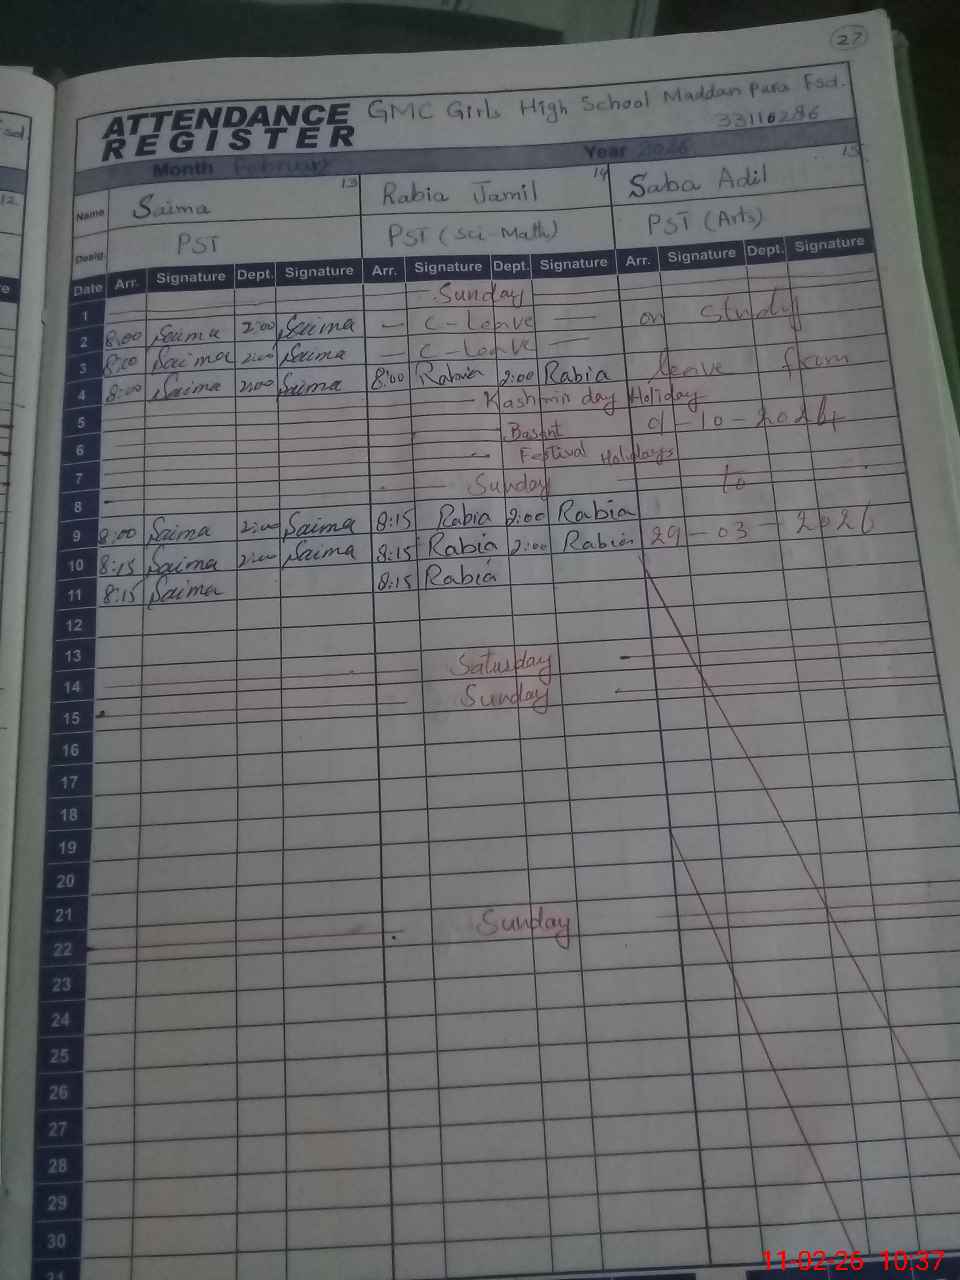 27
ATTENDANCE REGISTER GMC Girls High School Maddan Pura Fsd.
33110286
Month February Year 2026
Name Saima 13 Rabia Jamil 14 Saba Adil 15
Desig. PST PST (Sci-Math) PST (Arts)
Date Arr. Signature Dept. Signature Arr. Signature Dept. Signature Arr. Signature Dept. Signature
1 Sunday
2 8:00 Saima 2:00 Saima — C-Leave — on Study
3 8:00 Saima 2:00 Saima — C-Leave —
4 8:00 Saima 2:00 Saima 8:00 Rabia 2:00 Rabia leave from
5 Kashmir day Holiday
6 Basant 01-10-2024
7 Festival Holidays
8 Sunday to
9 8:00 Saima 2:00 Saima 8:15 Rabia 2:00 Rabia
10 8:15 Saima 2:00 Saima 8:15 Rabia 2:00 Rabia 29-03-2026
11 8:15 Saima 8:15 Rabia
12
13
14 Saturday
15 Sunday
16
17
18
19
20
21
22 Sunday
23
24
25
26
27
28
29
30
31
11-02-26 10:37